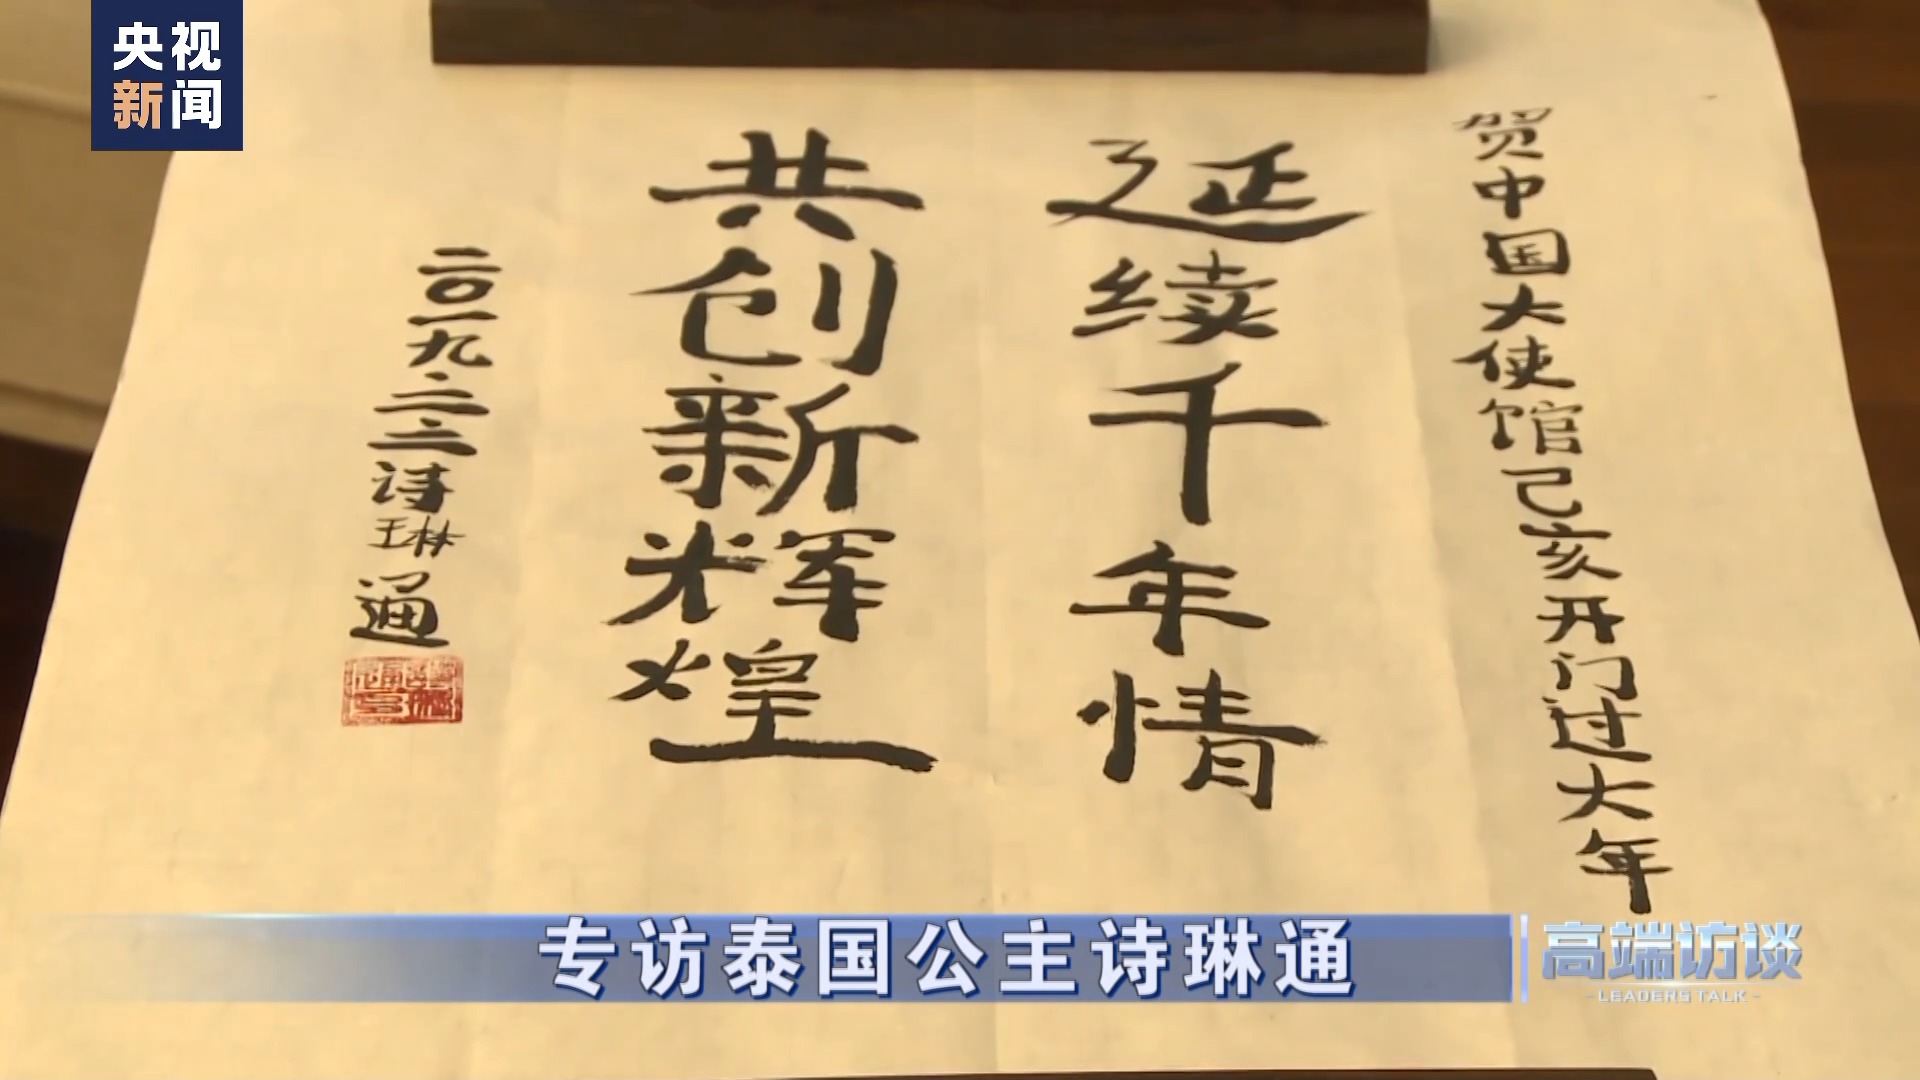 央视
新闻
贺中国大使馆己亥开门过大年
延续千年情
共创新辉煌
二〇一九二二诗琳通
专访泰国公主诗琳通
高端访谈
-LEADERS TALK-